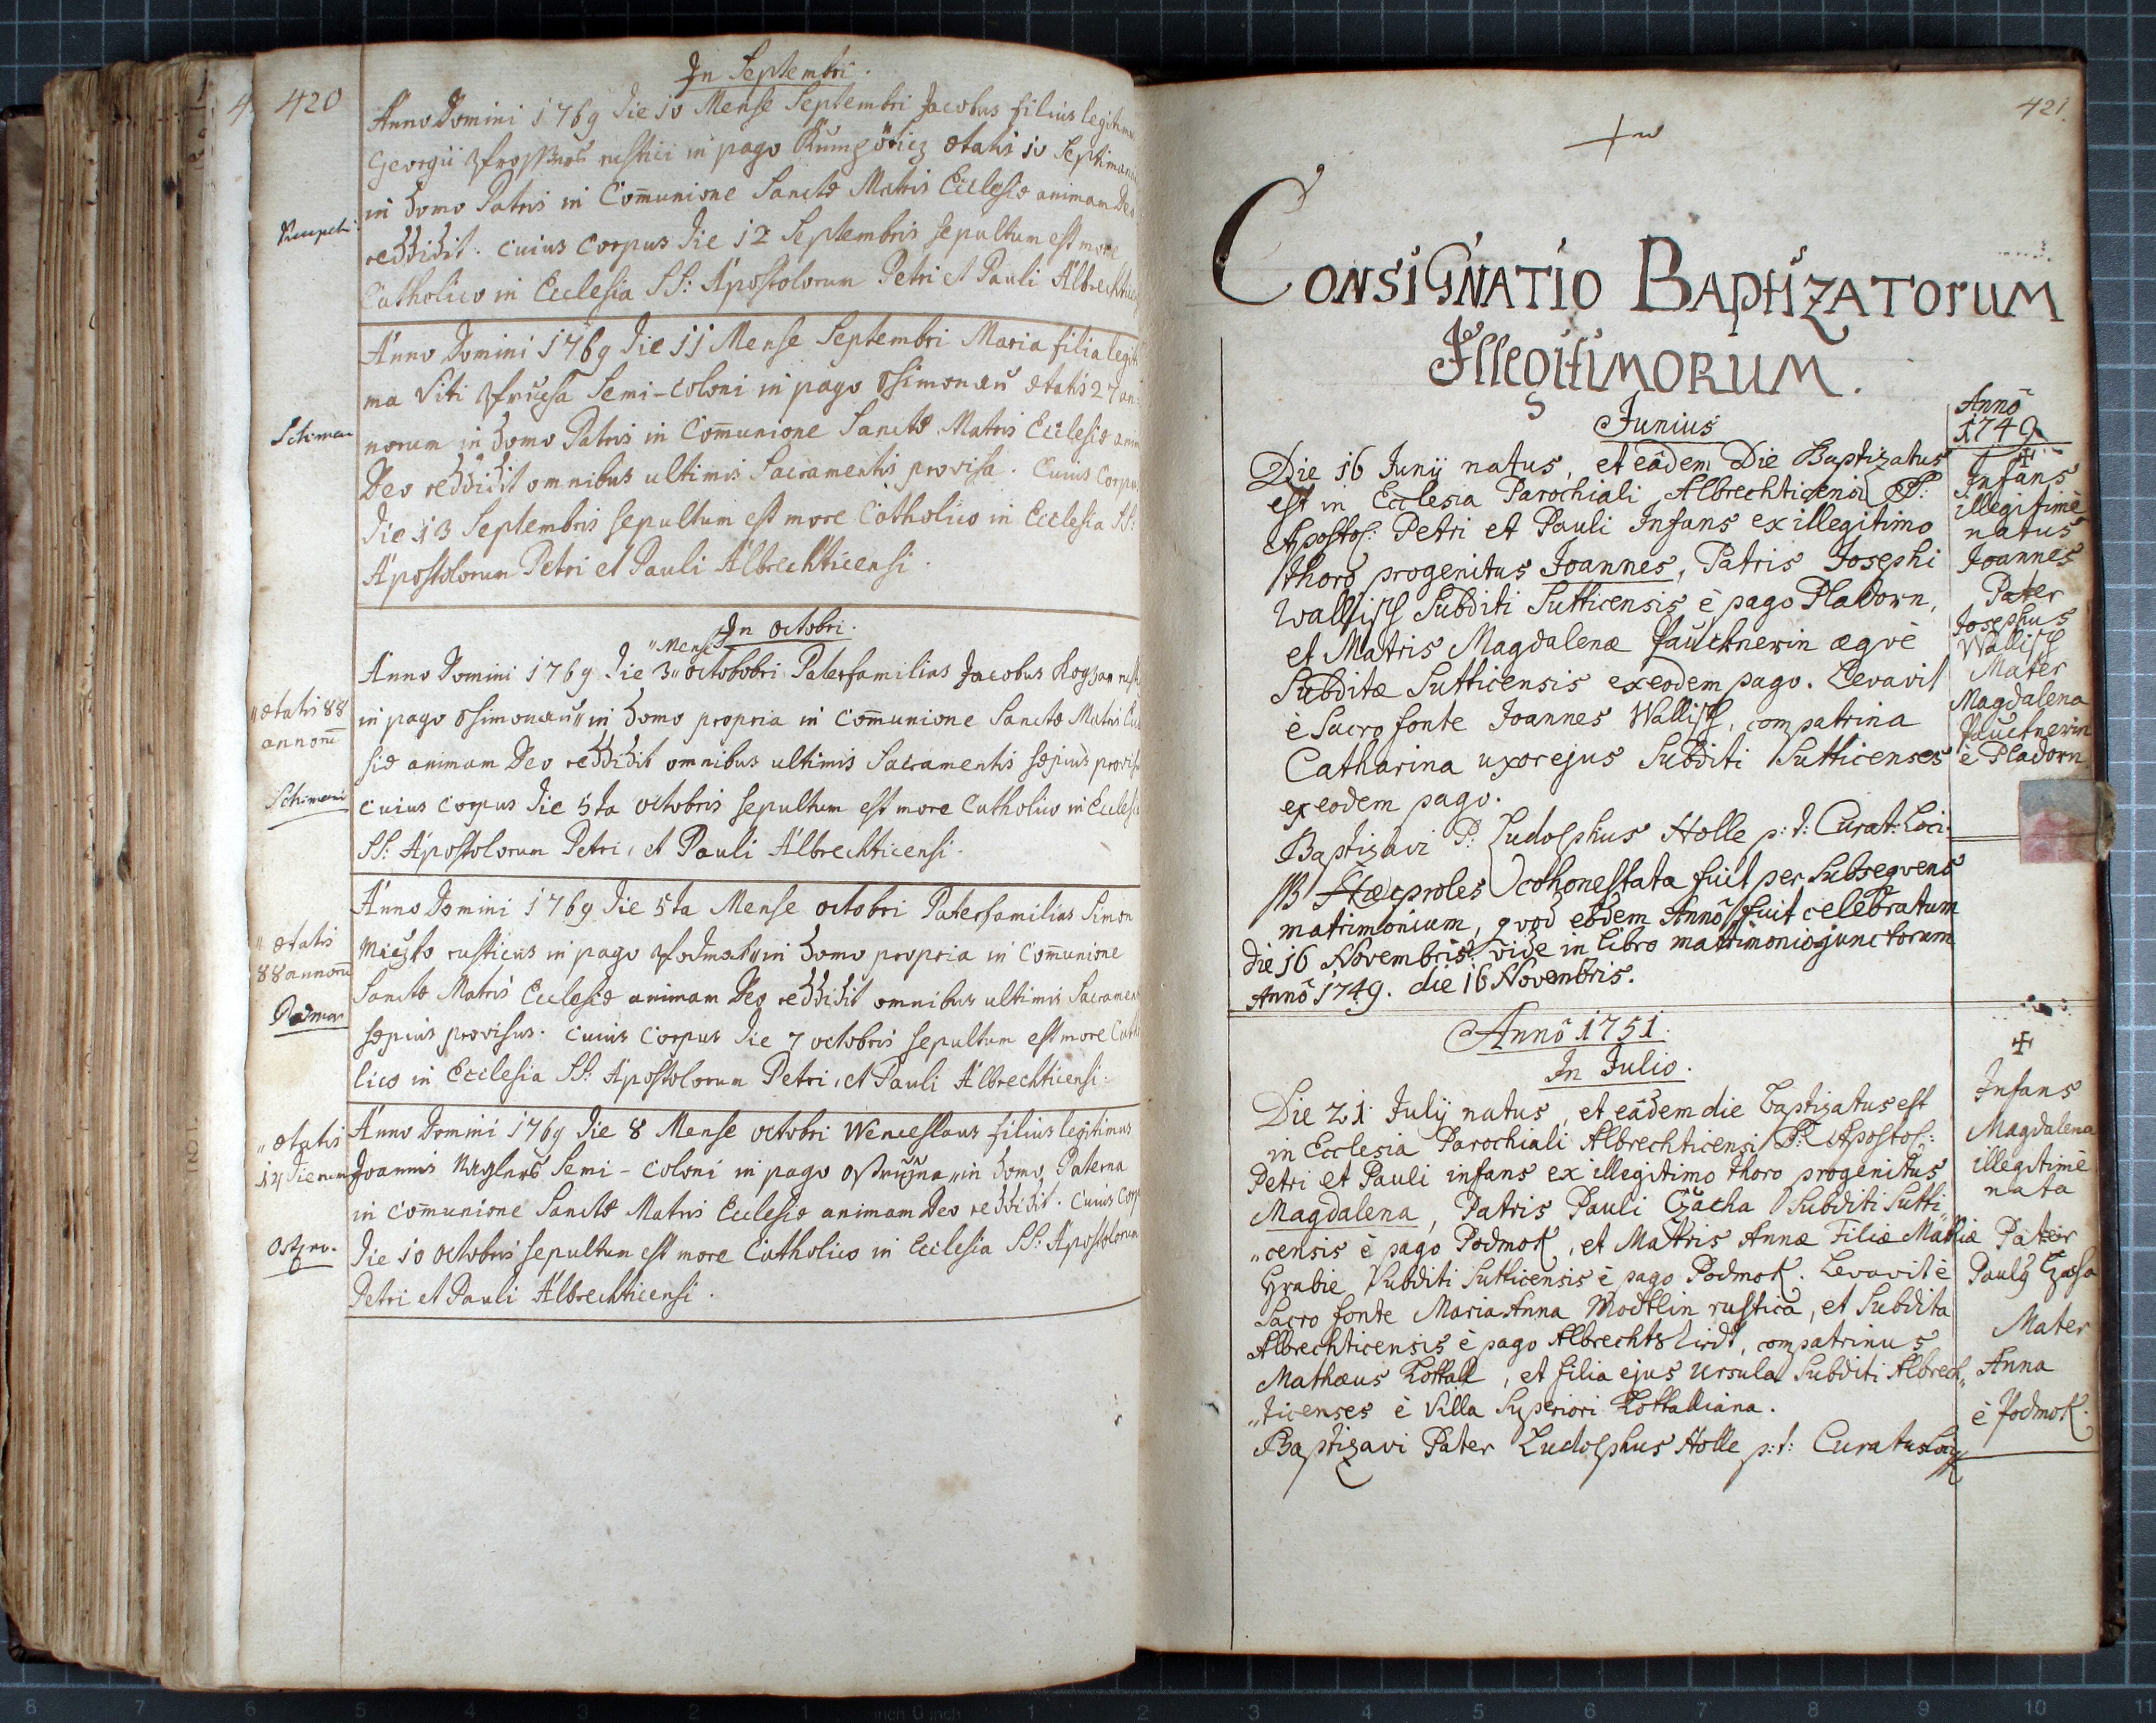 420
In Septembri.
Anno Domini 1769 die 10 Mense Septembri Jacobus filius legitim
Georgii rustici in pago ætatis 10 Septimana
in domo Patris in Com̅unione Sanctæ Matris Ecclesiæ animam Deo
reddidit. cuius corpus die 12 Septembris sepultum est more
Catholico in Ecclesia SS: Apostolorum Petri et Pauli Albrechtice
Anno Domini 1769 die 11 Mense Septembri Maria filia legiti
Schiman
ma Viti Semi-coloni in pago ætatis 27 an
norum in domo Patris in Com̅unione Sanctæ Matris Ecclesiæ anim
Deo reddidit omnibus ultimis Sacramentis provisa. Cuius corpus
die 13 Septembris sepultum est more Catholico in Ecclesia SS:
Apostolorum Petri et Pauli Albrechticensi.
In octobri.
"Mense
Anno Domini 1769 die 3" octobobri Paterfamilias Jacobus
"ætatis 88
annorū
in pago in domo propria in com̅unione Sanctæ Matris Eccle
siæ animam Deo reddidit omnibus ultimis Sacramentis sæpius provis
Schiman
cuius corpus die 5ta octobris sepultum est more Catholico in Ecclesia
SS: Apostolorum Petri, et Pauli Albrechticensi.
Anno Domini 1769 die 5ta Mense octobri Paterfamilias Simon
"ætatis
88 annorū
rusticus in pago in domo propria in Com̅unione
Sanctæ Matris Ecclesiæ animam Deo reddidit omnibus ultimis Sacramen
Podmok
sæpius provisus. cuius corpus die 7 octobris sepultum est more Catho
lico in Ecclesia SS: Apostolorum Petri, et Pauli Albrechticensi.
Anno Domini 1769 die 8 Mense octobri Wenceslaus filius legitimus
"ætatis
14 dierum
Joannis Semi-coloni in pago in domo Paterna
in com̅unione Sanctæ Matris Ecclesiæ animam Deo reddidit. Cuius corp
die 10 octobris sepultum est more Catholico in Ecclesia SS: Apostolorum
Petri et Pauli Albrechticensi.
421.
Consignatio Baptizatorum
Illegitimorum.
Junius
Die 16 Junij natus, et eâdem Die Baptizatus
est in Ecclesia Parochiali Albrechticensi SS:
Apostol: Petri et Pauli Infans ex illegitimo
thoro progenitus Joannes, Patris Josephi
Wallisch Subditi Sutticensis è pago Pladorn,
et Matris Magdalenæ Paucknerin æqvè
Subditæ Sutticensis ex eodem pago. Levavit
è Sacro fonte Joannes Wallisch, compatrina
Catharina uxor ejus Subditi Sutticenses
ex eodem pago.
Baptizavi P: Ludolphus Holle p:t: Curat: Loci.
NB Hæc proles cohonestata fuit per subseqvens
matrimonium, qvod eôdem Annô fuit celebratum
die 16 Novembris. vide in libro matrimonio junctorum
Annô 1749. die 16 Novembris.
Annô
1749
Infans
illegitimè
natus
Joannes
Pater
Josephus
Wallisch
Mater
Magdalena
Paucknerin
è Pladorn
Annô 1751.
In Julio.
Die 21 July natus, et eâdem die baptizatus est
in Ecclesia Parochiali Albrechticensi SS: Apostol:
Petri et Pauli infans ex illegitimo thoro progenitus
Magdalena, Patris Pauli Subditi Sutti„
„censis è pago Podmok, et Matris Annæ Filiæ Mathiæ
Hrabie Subditi Sutticensis è pago Podmok. Levavit è
Sacro fonte Maria Anna rustica, et Subdita
Albrechticensis è pago compatrinus
Mathæus Kottall, et filia ejus Ursula Subditi Albrech„
„ticenses è Villa Superiori Kottalliana.
Baptizavi Pater Ludolphus Holle p:t: Curatus Loci
Infans
Magdalena
illegitimè
nata
Pater
Mater
Anna
è Podmok.